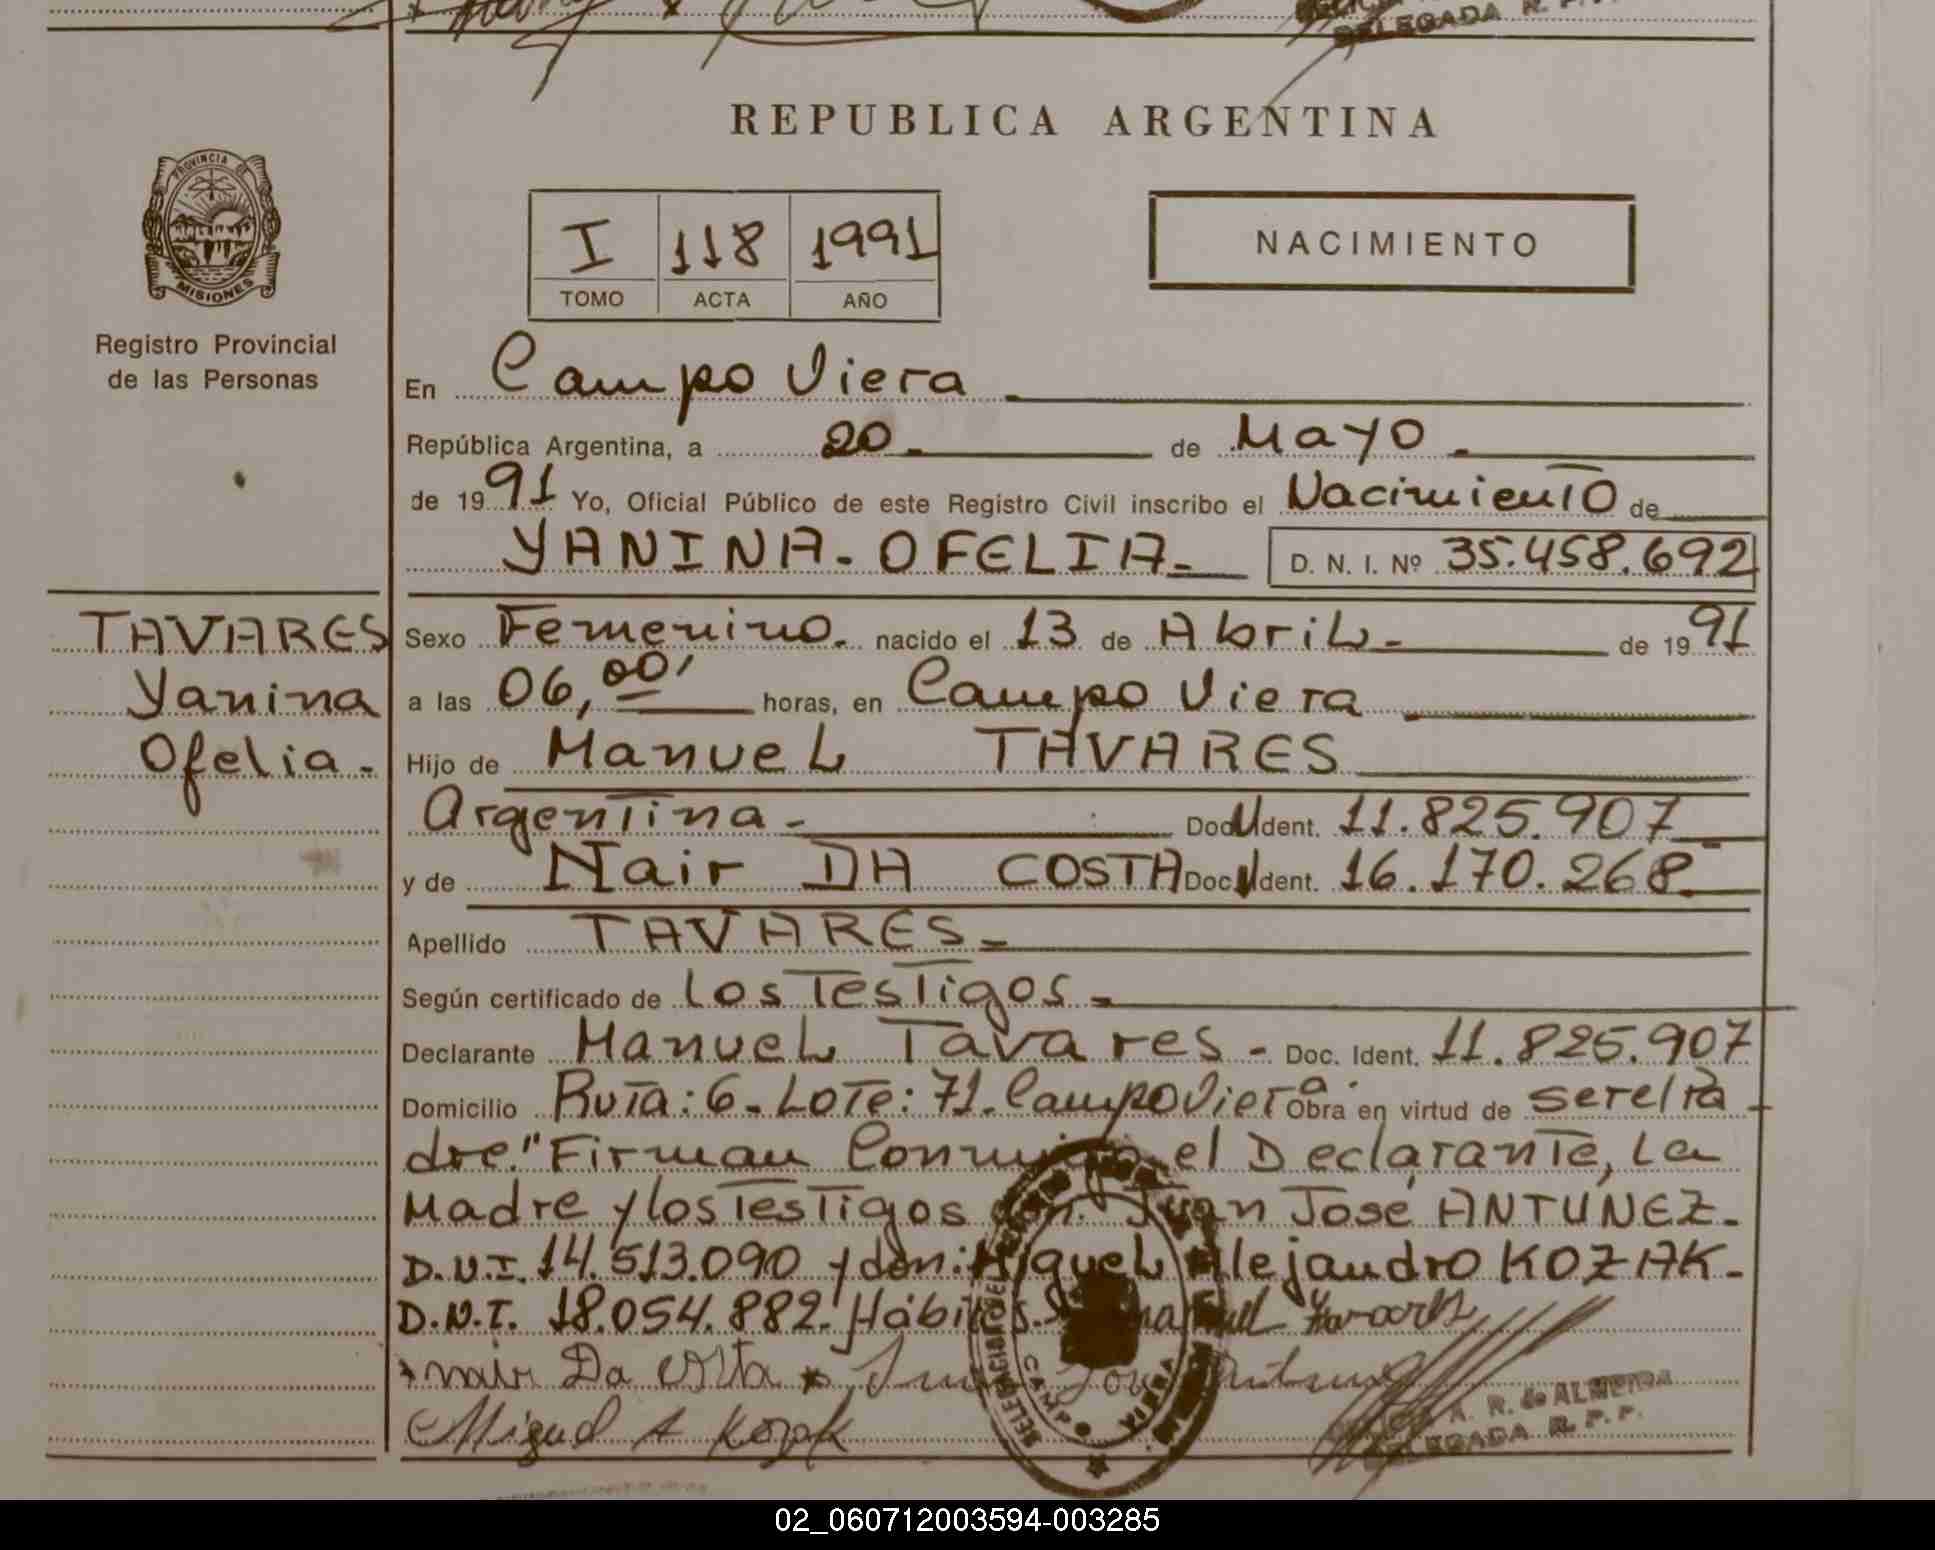 DELEGADA R. P. P.
REPUBLICA ARGENTINA
PROVINCIA DE
MISIONES
Registro Provincial
de las Personas
I 118 1991
TOMO ACTA AÑO
NACIMIENTO
En Campo Viera
República Argentina, a 20 de Mayo
de 1991 Yo, Oficial Público de este Registro Civil inscribo el Nacimiento de
YANINA - OFELIA - D. N. I. Nº 35.458.692
TAVARES
Yanina
Ofelia -
Sexo Femenino. nacido el 13 de Abril - de 1991
a las 06,00' horas, en Campo Viera
Hijo de Manuel TAVARES
Argentina - Doc. Ident. 11.825.907
y de Nair DA COSTA Doc. Ident. 16.170.268
Apellido TAVARES -
Según certificado de los Testigos -
Declarante Manuel Tavares - Doc. Ident. 11.825.907
Domicilio Ruta: 6 - Lote: 71. Campo Viera. Obra en virtud de ser el Pa
dre." Firman Conmigo el Declarante, La
Madre y los Testigos don: Juan José ANTUNEZ -
D.N.I. 14.513.090 y don: Miguel Alejandro KOZAK -
D.N.I. 18.054.882. Hábiles. Manuel Tavares
nair Da Costa Juan José Antunez
Miguel A Kozak
A. R. de ALMEIDA
DELEGADA R. P. P.
CAMPO VIERA
02_060712003594-003285